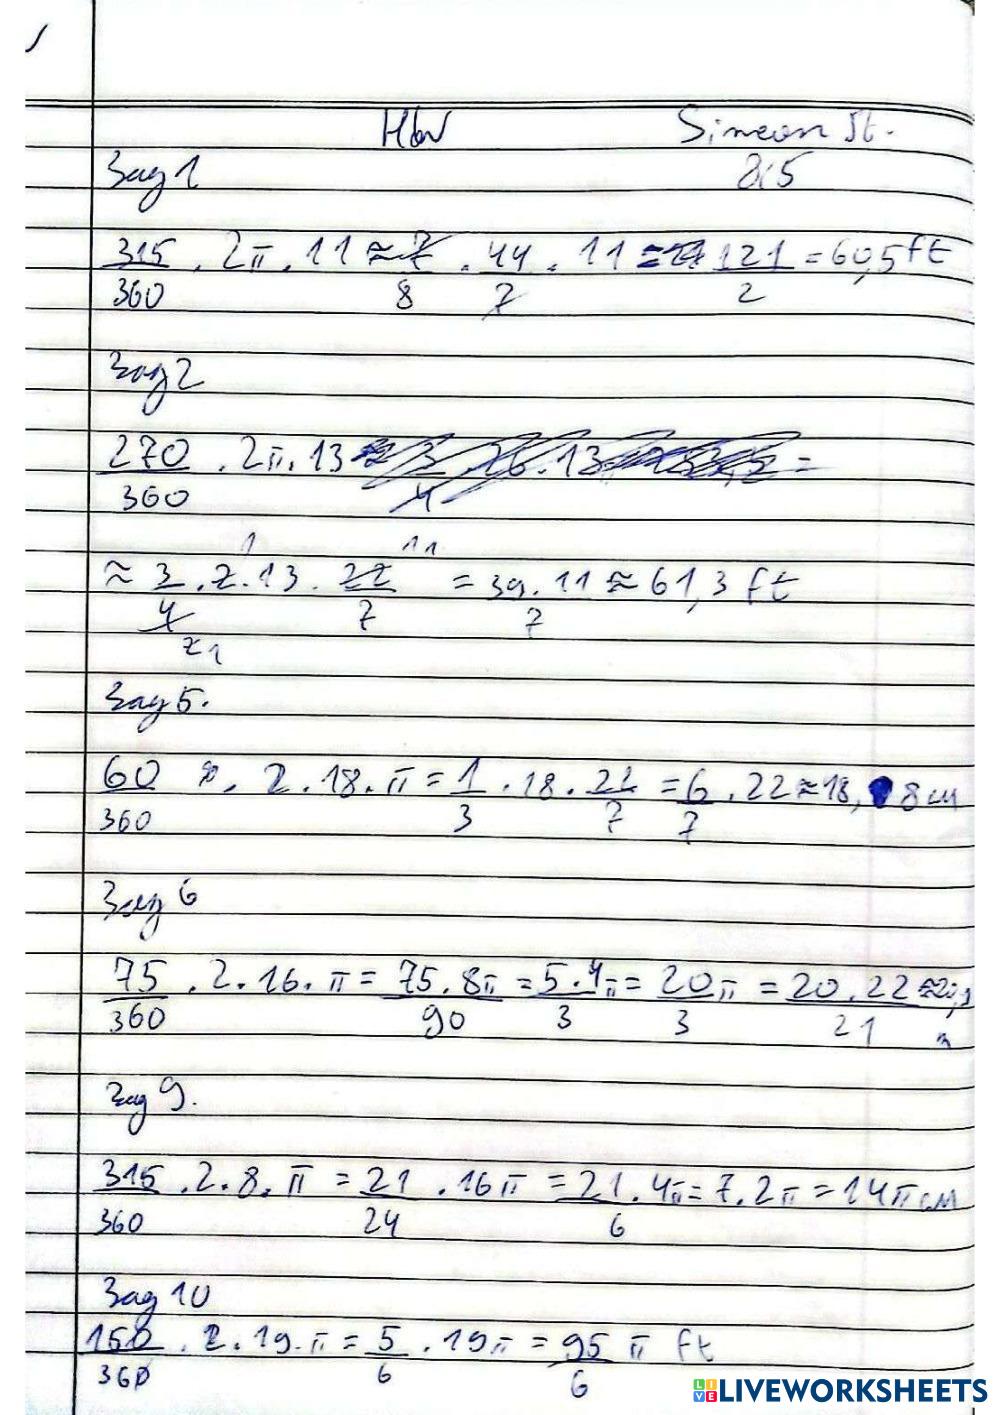 HW Simeon St.
Зад 1 8б
315/360 . 2π . 11 ≈ 7/8 . 44/7 . 11 = 121/2 = 60,5 ft
Зад 2
270/360 . 2π . 13
≈ 3/4 . 2 . 13 . 22/7 = 39 . 11/7 ≈ 61,3 ft
Зад 5.
60/360 . 2 . 18 . π = 1/3 . 18 . 22/7 = 6/7 . 22 ≈ 18,8 см
Зад 6
75/360 . 2 . 16 . π = 75 . 8π/90 = 5 . 4π/3 = 20π/3 = 20 . 22/21
Зад 9.
315/360 . 2 . 8 . π = 21/24 . 16π = 21 . 4π/6 = 7 . 2π = 14π см
Зад 10
150/360 . 2 . 19 . π = 5/6 . 19π = 95/6 π ft
LIVEWORKSHEETS